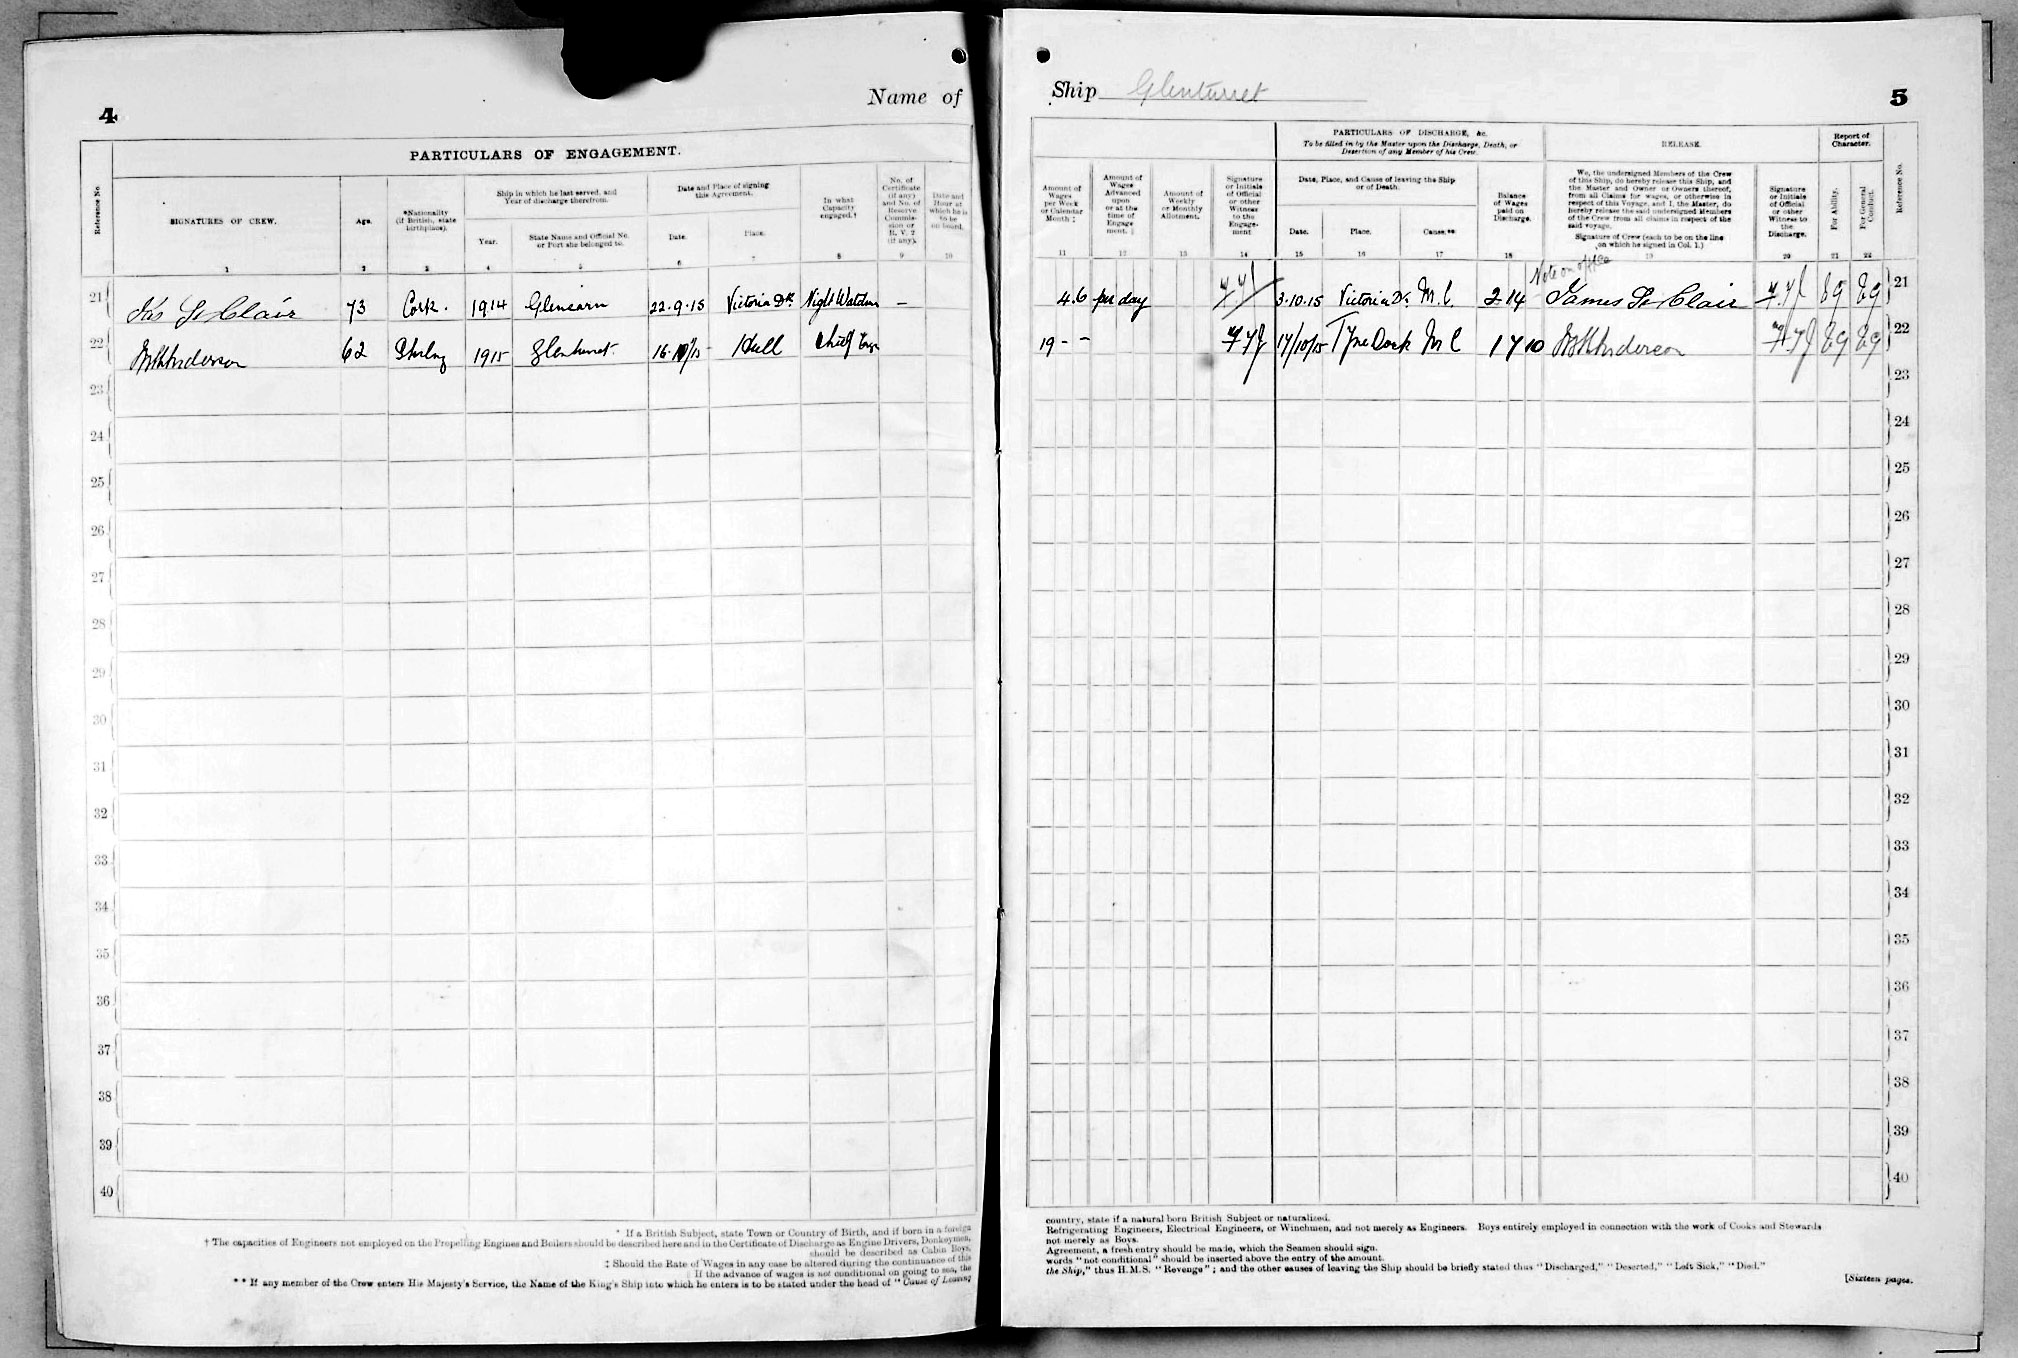 4
Name of
PARTICULARS OF ENGAGEMENT.
Reference No.
SIGNATURES OF CREW.
Age.
*Nationality
(if British, state
birthplace).
Ship in which he last served, and
Year of discharge therefrom.
Year.
State Name and Official No.
or Port she belonged to.
Date and Place of signing
this Agreement.
Date.
Place.
In what
Capacity
engaged.†
No. of
Certificate
(if any)
and No. of
Reserve
Commis-
sion or
R. V. 2
(if any).
Date and
Hour at
which he is
to be
on board.
1 2 3 4 5 6 7 8 9 10
21 Jas St Clair 73 Cork. 1914 Glenearn 22.9.15 Victoria Dk Night Watchm —
22 Anderson 62 1915 Glenturret 16.10/15 Hull Chief Engr
23
24
25
26
27
28
29
30
31
32
33
34
35
36
37
38
39
40
* If a British Subject, state Town or Country of Birth, and if born in a foreign
† The capacities of Engineers not employed on the Propelling Engines and Boilers should be described here and in the Certificate of Discharge as Engine Drivers, Donkeymen,
should be described as Cabin Boys,
‡ Should the Rate of Wages in any case be altered during the continuance of this
If the advance of wages is not conditional on going to sea, the
** If any member of the Crew enters His Majesty's Service, the Name of the King's Ship into which he enters is to be stated under the head of "Cause of Leaving
Ship Glenturret
5
Amount of
Wages
per Week
or Calendar
Month ‡
Amount of
Wages
Advanced
upon
or at the
time of
Engage
ment. ‖
Amount of
Weekly
or Monthly
Allotment.
Signature
or Initials
of Official
or other
Witness
to the
Engage-
ment
PARTICULARS OF DISCHARGE, &c.
To be filled in by the Master upon the Discharge, Death, or
Desertion of any Member of his Crew.
Date, Place, and Cause of leaving the Ship
or of Death.
Date.
Place.
Cause.**
Balance
of Wages
paid on
Discharge.
RELEASE.
We, the undersigned Members of the Crew
of this Ship, do hereby release this Ship, and
the Master and Owner or Owners thereof,
from all Claims for wages, or otherwise in
respect of this Voyage, and I, the Master, do
hereby release the said undersigned Members
of the Crew from all claims in respect of the
said voyage.
Signature of Crew (each to be on the line
on which he signed in Col. 1.)
Signature
or Initials
of Official
or other
Witness to
the
Discharge.
Report of
Character.
For Ability.
For General
Conduct.
Reference No.
11 12 13 14 15 16 17 18 19 20 21 22
Note on office
4.6 per day 3.10.15 Victoria Dk M.C. 2 14 James St Clair 21
19 - - 17/10/15 Tyne Dock M C 1 7 10 Anderson 22
23
24
25
26
27
28
29
30
31
32
33
34
35
36
37
38
39
40
country, state if a natural born British Subject or naturalized.
Refrigerating Engineers, Electrical Engineers, or Winchmen, and not merely as Engineers. Boys entirely employed in connection with the work of Cooks and Stewards
not merely as Boys.
Agreement, a fresh entry should be made, which the Seamen should sign.
words "not conditional" should be inserted above the entry of the amount.
the Ship," thus H.M.S. "Revenge"; and the other causes of leaving the Ship should be briefly stated thus "Discharged," "Deserted," "Left Sick," "Died."
[Sixteen pages.